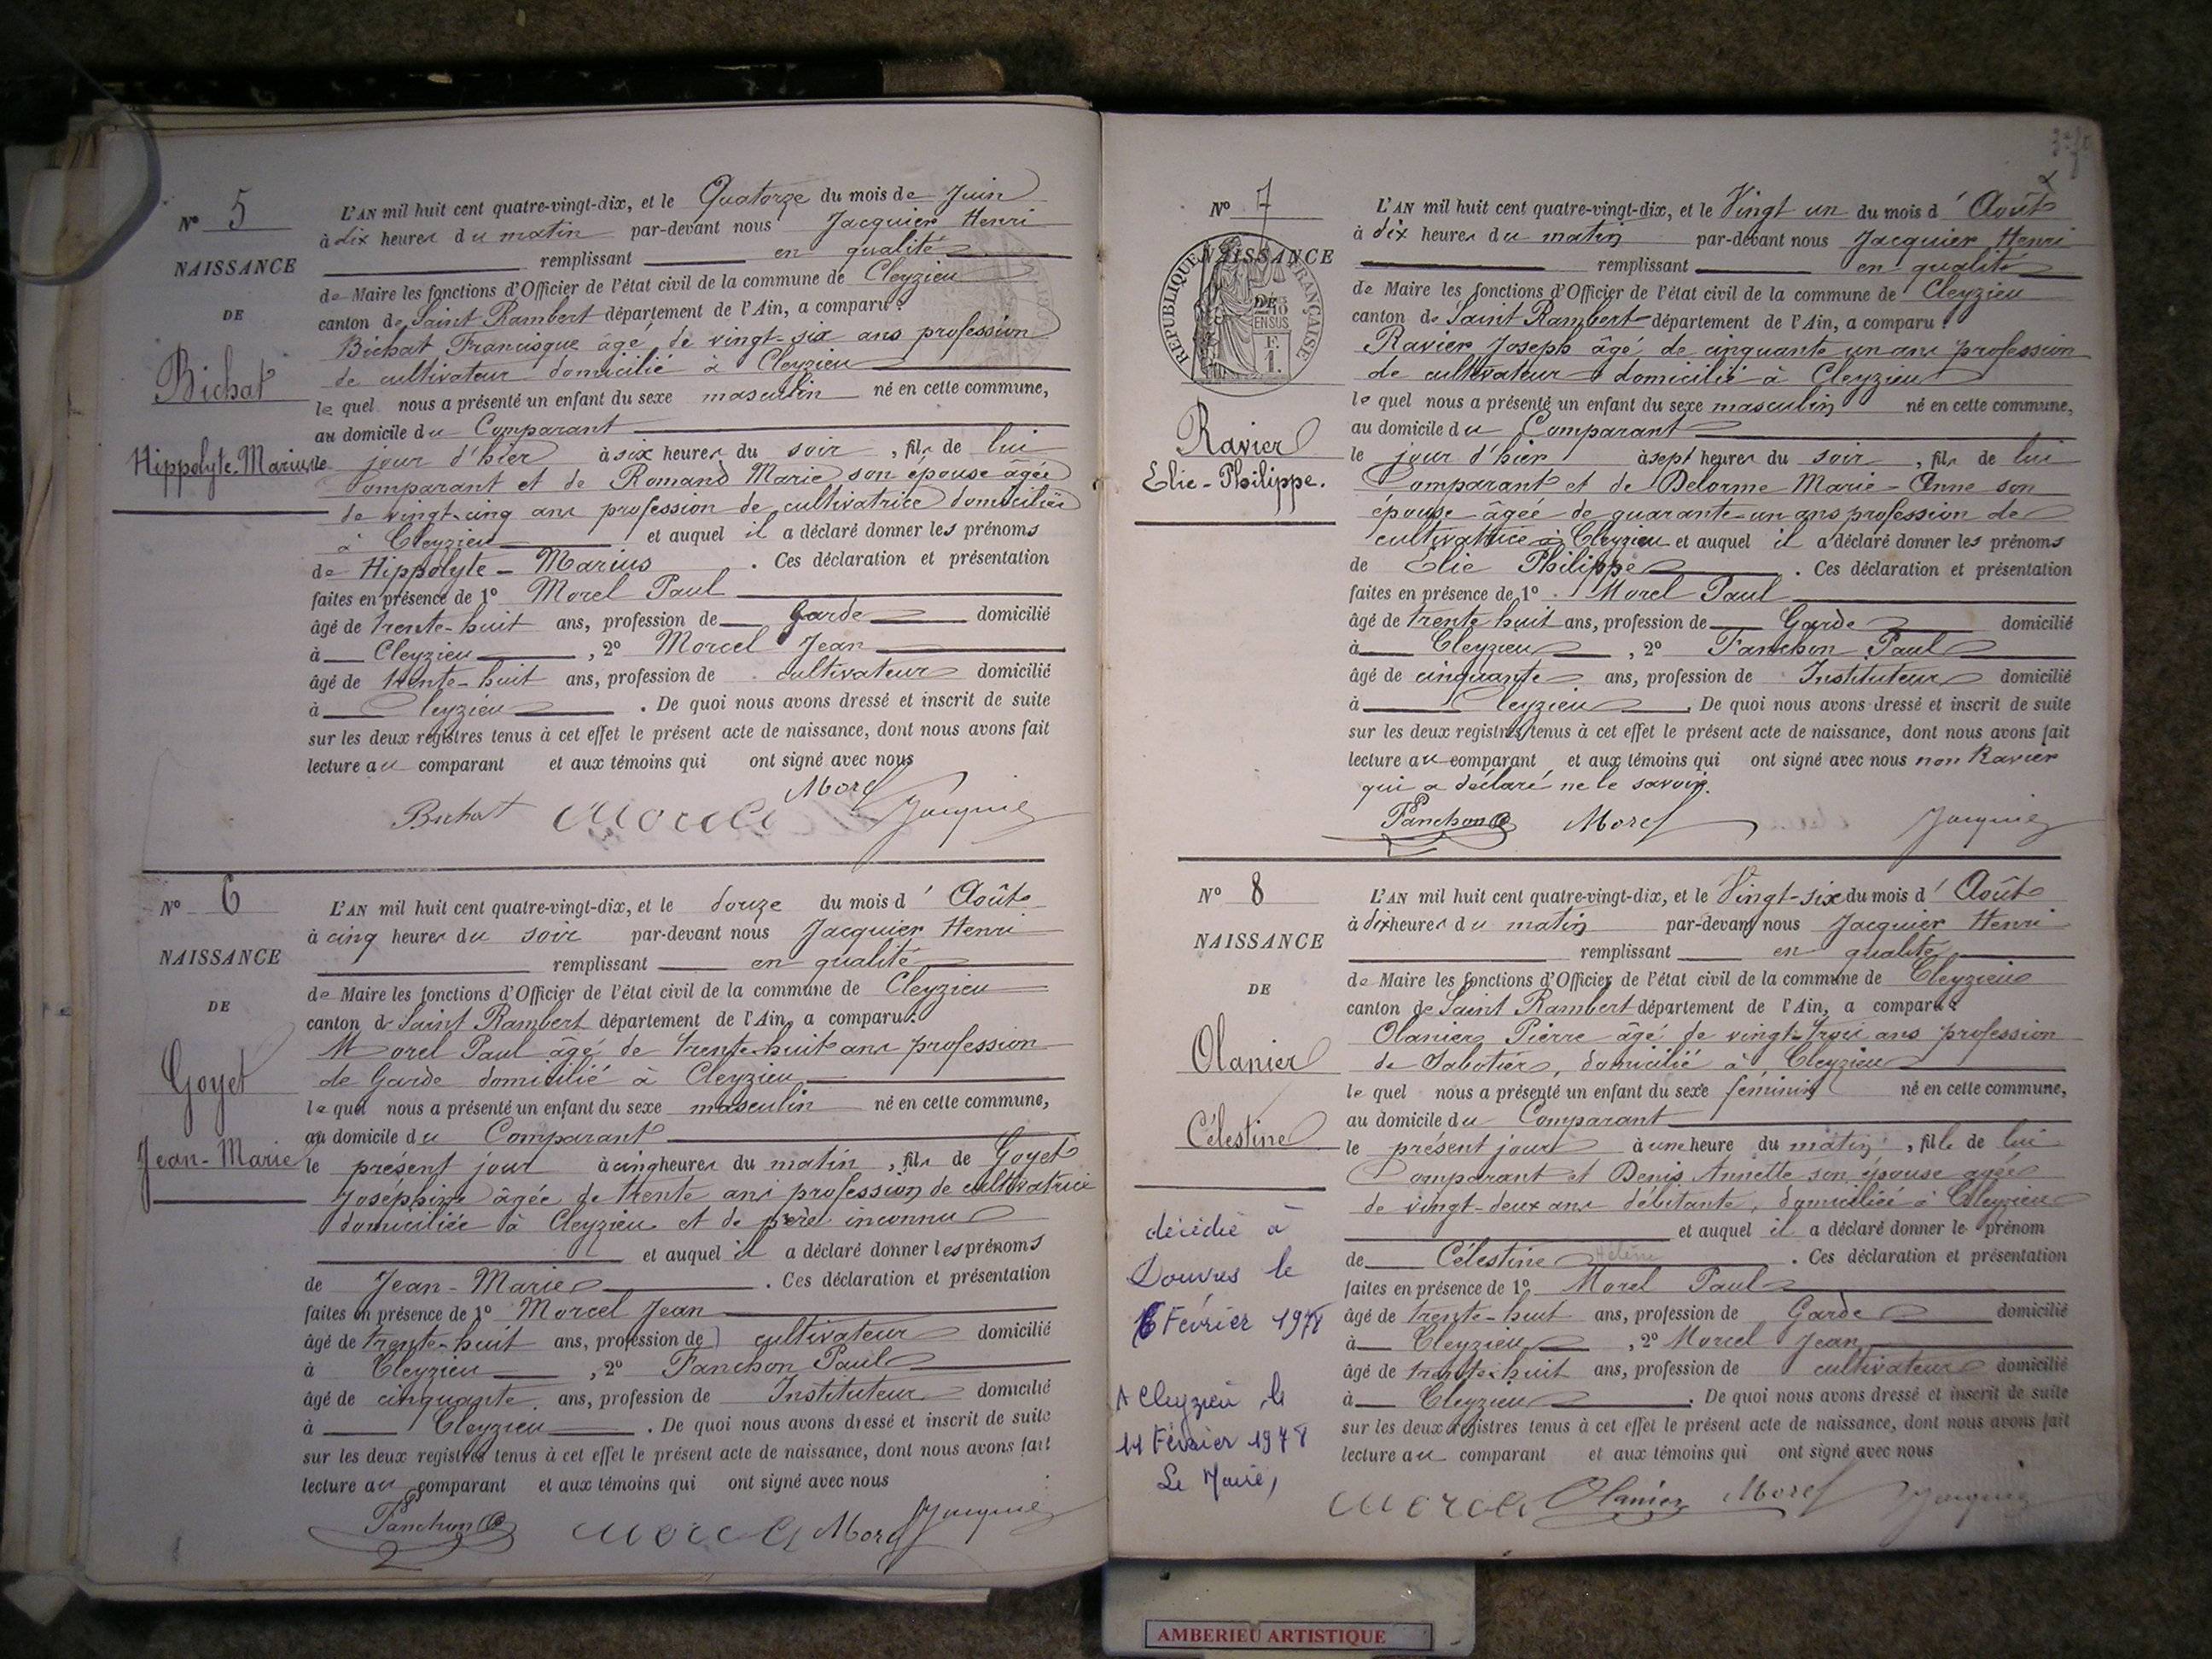 N° 5
NAISSANCE
DE
Bichat
Hippolyte-Marius
L'AN mil huit cent quatre-vingt-dix, et le Quatorze du mois de Juin
à dix heures du matin par-devant nous Jacquier Henri
remplissant en qualité
de Maire les fonctions d'Officier de l'état civil de la commune de Cleyzieu
canton de Saint Rambert département de l'Ain, a comparu :
Bichat Francisque âgé de vingt-six ans profession
de cultivateur domicilié à Cleyzieu
le quel nous a présenté un enfant du sexe masculin né en cette commune,
au domicile du Comparant
le jour d'hier à six heures du soir, fils de lui
Comparant et de Romand Marie son épouse agée
de vingt-cinq ans profession de cultivatrice domiciliée
à Cleyzieu et auquel il a déclaré donner les prénoms
de Hippolyte - Marius. Ces déclaration et présentation
faites en présence de 1° Morel Paul
âgé de trente-huit ans, profession de Garde domicilié
à Cleyzieu, 2° Morcel Jean
âgé de trente-huit ans, profession de cultivateur domicilié
à Cleyzieu. De quoi nous avons dressé et inscrit de suite
sur les deux registres tenus à cet effet le présent acte de naissance, dont nous avons fait
lecture au comparant et aux témoins qui ont signé avec nous
Bichat Morcel Morel Jacquier
N° 6
NAISSANCE
DE
Goyet
Jean-Marie
L'AN mil huit cent quatre-vingt-dix, et le douze du mois d'Août
à cinq heures du soir par-devant nous Jacquier Henri
remplissant en qualité
de Maire les fonctions d'Officier de l'état civil de la commune de Cleyzieu
canton de Saint Rambert département de l'Ain, a comparu :
Morel Paul âgé de trente-huit ans profession
de Garde domicilié à Cleyzieu
le quel nous a présenté un enfant du sexe masculin né en cette commune,
au domicile du Comparant
le présent jour à cinq heures du matin, fils de Goyet
Joséphine âgée de trente ans profession de cultivatrice
domiciliée à Cleyzieu et de père inconnu
et auquel il a déclaré donner les prénoms
de Jean-Marie. Ces déclaration et présentation
faites en présence de 1° Morcel Jean
âgé de trente-huit ans, profession de cultivateur domicilié
à Cleyzieu, 2° Fanchon Paul
âgé de cinquante ans, profession de Instituteur domicilié
à Cleyzieu. De quoi nous avons dressé et inscrit de suite
sur les deux registres tenus à cet effet le présent acte de naissance, dont nous avons fait
lecture au comparant et aux témoins qui ont signé avec nous
Fanchon Morcel Morel Jacquier
N° 7
NAISSANCE
DE
REPUBLIQUE FRANÇAISE
Ravier
Elie-Philippe.
L'AN mil huit cent quatre-vingt-dix, et le Vingt un du mois d'Août
à dix heures du matin par-devant nous Jacquier Henri
remplissant en qualité
de Maire les fonctions d'Officier de l'état civil de la commune de Cleyzieu
canton de Saint Rambert département de l'Ain, a comparu :
Ravier Joseph âgé de cinquante un ans profession
de cultivateur domicilié à Cleyzieu
le quel nous a présenté un enfant du sexe masculin né en cette commune,
au domicile du Comparant
le jour d'hier à sept heures du soir, fils de lui
Comparant et de Delorme Marie-Anne son
épouse âgée de quarante-un ans profession de
cultivatrice à Cleyzieu et auquel il a déclaré donner les prénoms
de Elie Philippe. Ces déclaration et présentation
faites en présence de 1° Morel Paul
âgé de trente huit ans, profession de Garde domicilié
à Cleyzieu, 2° Fanchon Paul
âgé de cinquante ans, profession de Instituteur domicilié
à Cleyzieu. De quoi nous avons dressé et inscrit de suite
sur les deux registres tenus à cet effet le présent acte de naissance, dont nous avons fait
lecture au comparant et aux témoins qui ont signé avec nous non Ravier
qui a déclaré ne le savoir.
Fanchon Morel Jacquier
N° 8
NAISSANCE
DE
Olanier
Célestine
décédée à
Douvres le
6 Février 1978
A Cleyzieu le
14 Février 1978
Le Maire,
L'AN mil huit cent quatre-vingt-dix, et le Vingt-six du mois d'Août
à dix heures du matin par-devant nous Jacquier Henri
remplissant en qualité
de Maire les fonctions d'Officier de l'état civil de la commune de Cleyzieu
canton de Saint Rambert département de l'Ain, a comparu :
Olanier Pierre âgé de vingt-trois ans profession
de Sabotier, domicilié à Cleyzieu
le quel nous a présenté un enfant du sexe féminin né en cette commune,
au domicile du Comparant
le présent jour à une heure du matin, fille de lui
Comparant et Denis Annette son épouse agée
de vingt-deux ans débitante, domiciliée à Cleyzieu
et auquel il a déclaré donner le prénom
de Célestine Hélène. Ces déclaration et présentation
faites en présence de 1° Morel Paul
âgé de trente-huit ans, profession de Garde domicilié
à Cleyzieu, 2° Morcel Jean
âgé de trente-huit ans, profession de cultivateur domicilié
à Cleyzieu. De quoi nous avons dressé et inscrit de suite
sur les deux registres tenus à cet effet le présent acte de naissance, dont nous avons fait
lecture au comparant et aux témoins qui ont signé avec nous
Morcel Olanier Morel Jacquier
AMBERIEU ARTISTIQUE